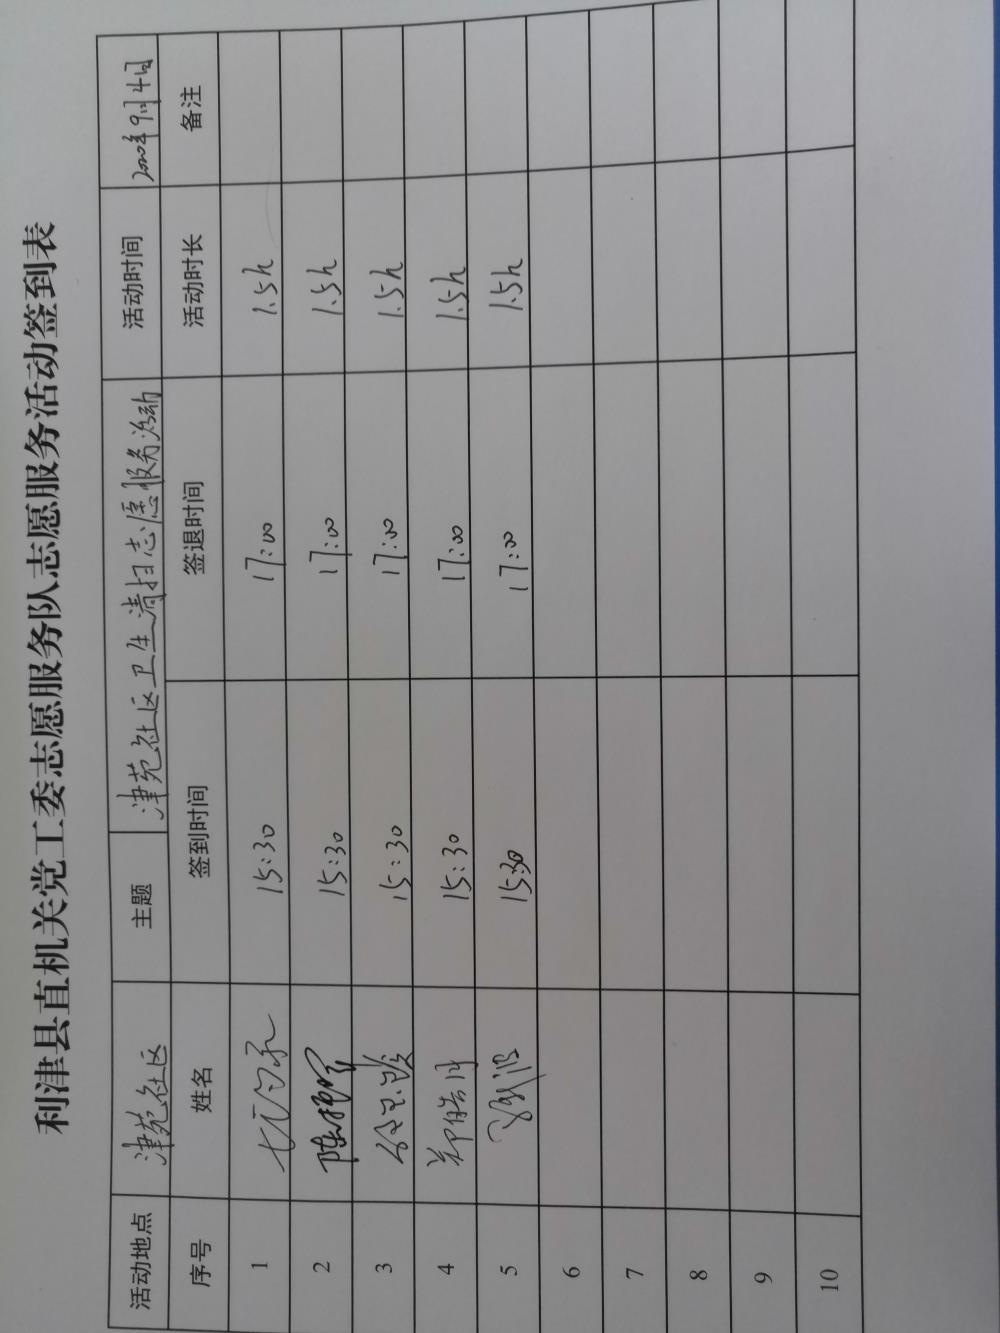 利津县直机关党工委志愿服务队志愿服务活动签到表
活动地点 津苑社区 主题 津苑社区卫生清扫志愿服务活动 活动时间 2020年9月4日
序号 姓名 签到时间 签退时间 活动时长 备注
1 15:30 17:00 1.5h
2 15:30 17:00 1.5h
3 15:30 17:00 1.5h
4 15:30 17:00 1.5h
5 15:30 17:00 1.5h
6
7
8
9
10